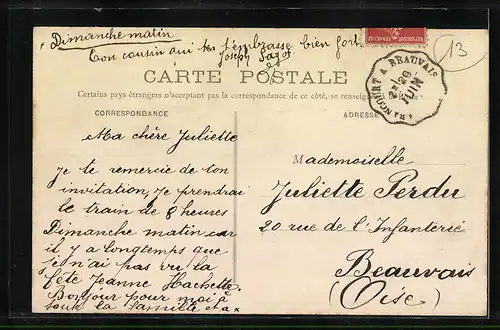 Dimanche matin
Ton cousin qui t'embrasse bien fort
Joseph
13
RÉPUBLIQUE FRANÇAISE
ABANCOURT A BEAUVAIS
26
JUIN
CARTE POSTALE
Certains pays étrangers n'acceptant pas la correspondance de ce côté, se renseigner
CORRESPONDANCE
ADRESSE
Ma chère Juliette
Je te remercie de ton
invitation, je prendrai
le train de 8 heures
Dimanche matin car
il y a longtemps que
je n'ai pas vu la
fête Jeanne Hachette.
Bonjour pour moi à
toute la famille et ax
Mademoiselle
Juliette Perdu
20 rue de l'Infanterie
Beauvais
(Oise)